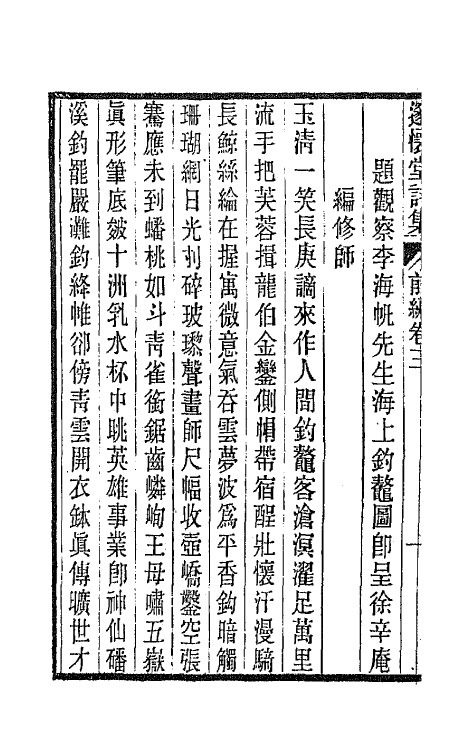 邃懷堂詩集 前編卷三 一
題觀察李海帆先生海上釣鼇圖卽呈徐辛庵
編修師
玉淸一笑長庚謫來作人間釣鼇客滄溟濯足萬里
流手把芙蓉揖龍伯金鑾側帽帶宿酲壯懷汗漫騎
長鯨絲綸在握寓微意氣吞雲夢波爲平香鈎暗觸
珊瑚網日光刌碎玻瓈聲畫師尺幅收壺嶠鑿空張
騫應未到蟠桃如斗靑雀銜鋸齒嶙峋王母嘯五嶽
眞形筆底皴十洲乳水杯中眺英雄事業卽神仙磻
溪釣罷嚴灘釣絳帷卻傍靑雲開衣鉢眞傳曠世才